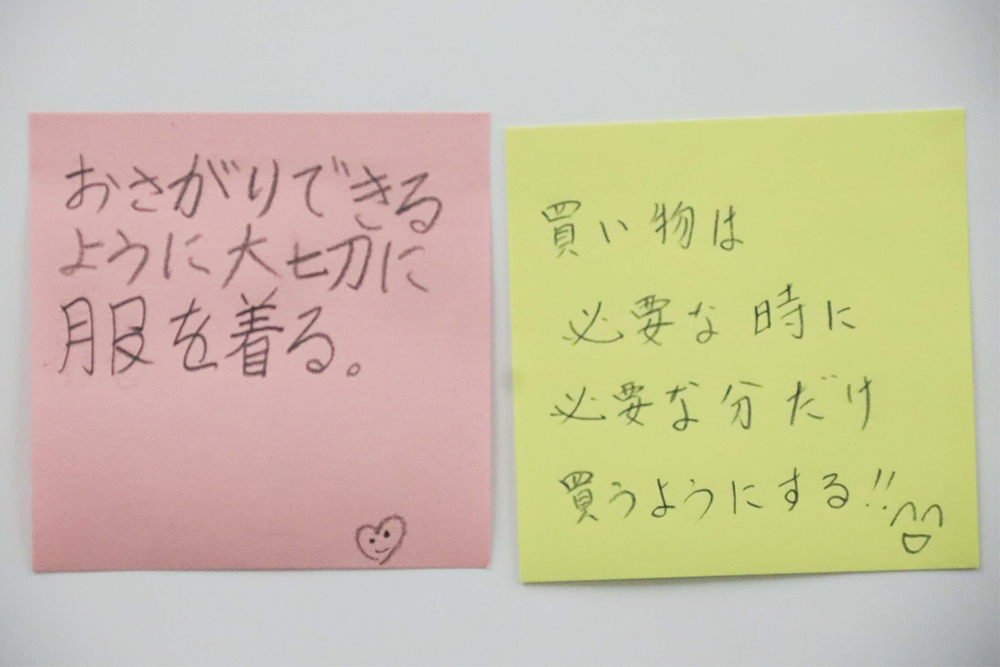 おさがりできる
ように大切に
服を着る。
買い物は
必要な時に
必要な分だけ
買うようにする!!